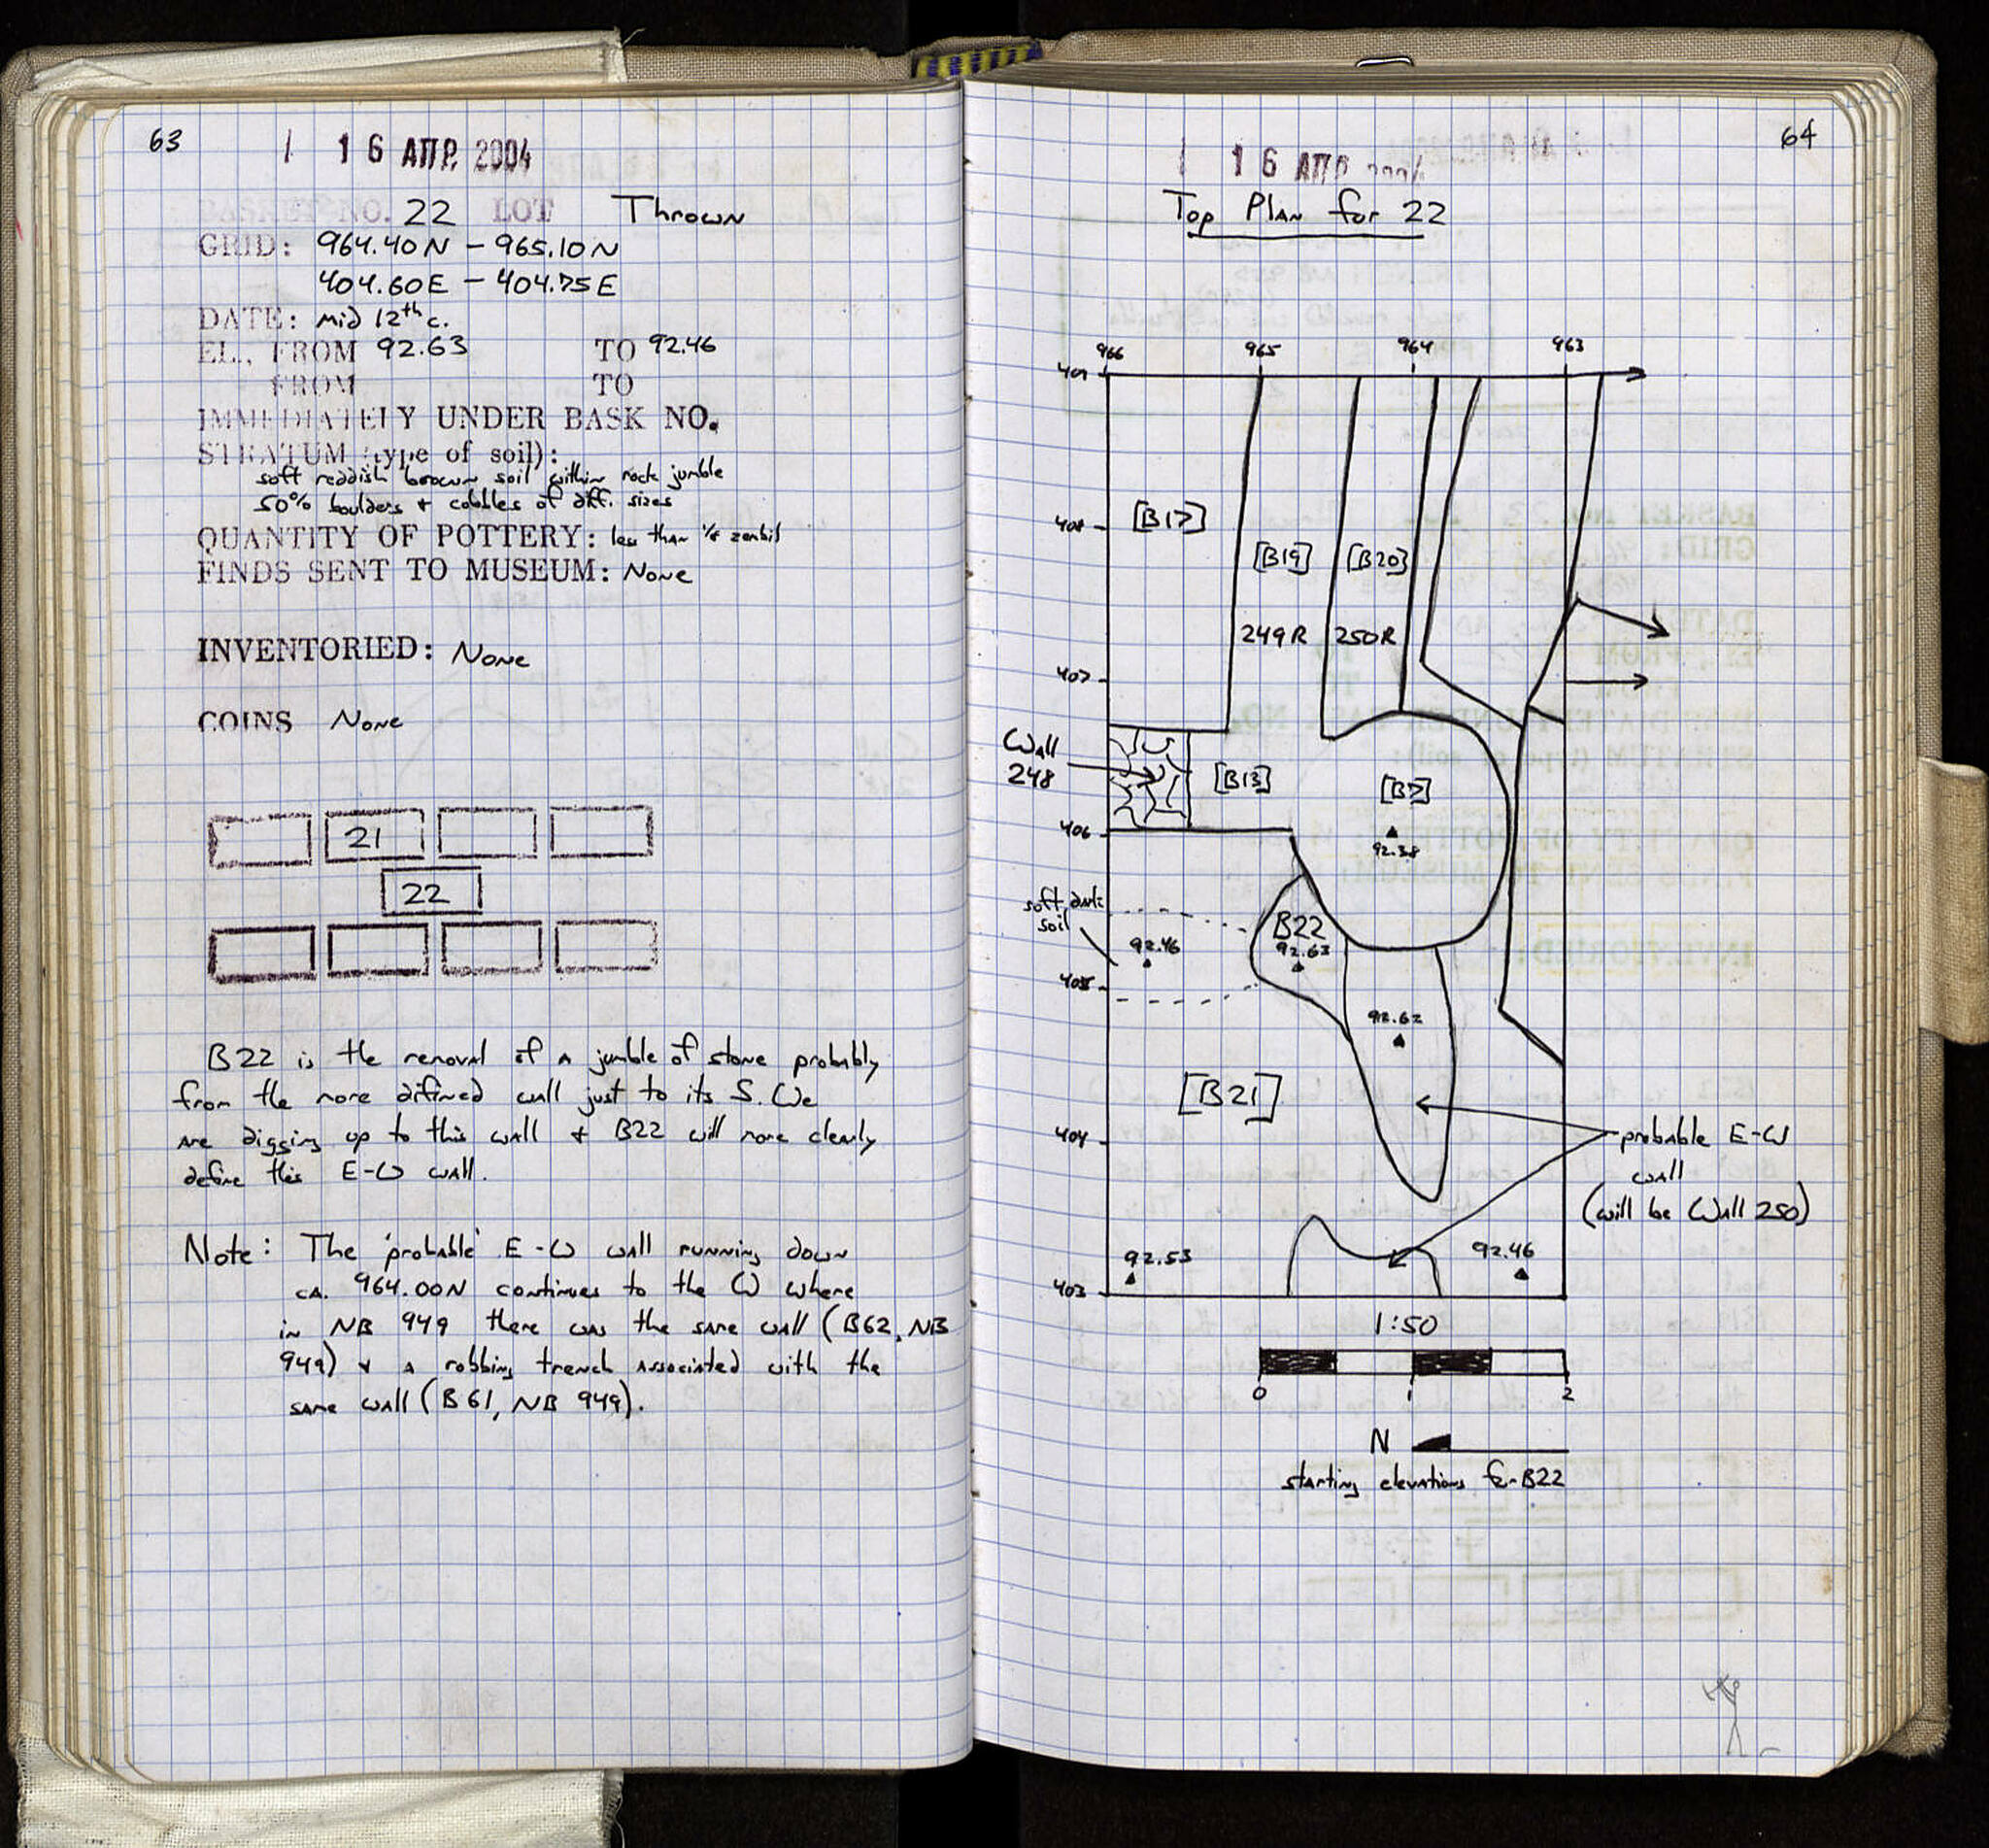 63
16 ΑΠΡ. 2004
BASKET NO. 22 LOT Thrown
GRID: 964.40N - 965.10N
404.60E - 404.75E
DATE: Mid 12th c.
EL., FROM 92.63 TO 92.46
FROM TO
IMMEDIATELY UNDER BASK NO.
STRATUM (type of soil):
soft reddish brown soil within rock jumble
50% boulders + cobbles of diff. sizes
QUANTITY OF POTTERY: less than zembil
FINDS SENT TO MUSEUM: None
INVENTORIED: None
COINS None
21
22
B22 is the removal of a jumble of stone probably
from the more difined wall just to its S. We
are digging up to this wall + B22 will more clearly
define this E-W wall.
Note: The 'probable' E-W wall running down
ca. 964.00N continues to the W where
in NB 949 there was the same wall (B62, NB
949) + a robbing trench associated with the
same wall (B61, NB 949).
64
16 ΑΠΡ
Top Plan for 22
966 965 964 963
409
408
[B17]
[B19] [B20]
249R 250R
407
Wall
248
[B13]
[B7]
406
92.38
soft dark
soil
B22
92.46
92.63
405
92.62
[B21]
404
probable E-W
wall
(will be Wall 250)
92.53
92.46
403
1:50
0 1 2
N
starting elevations for B22